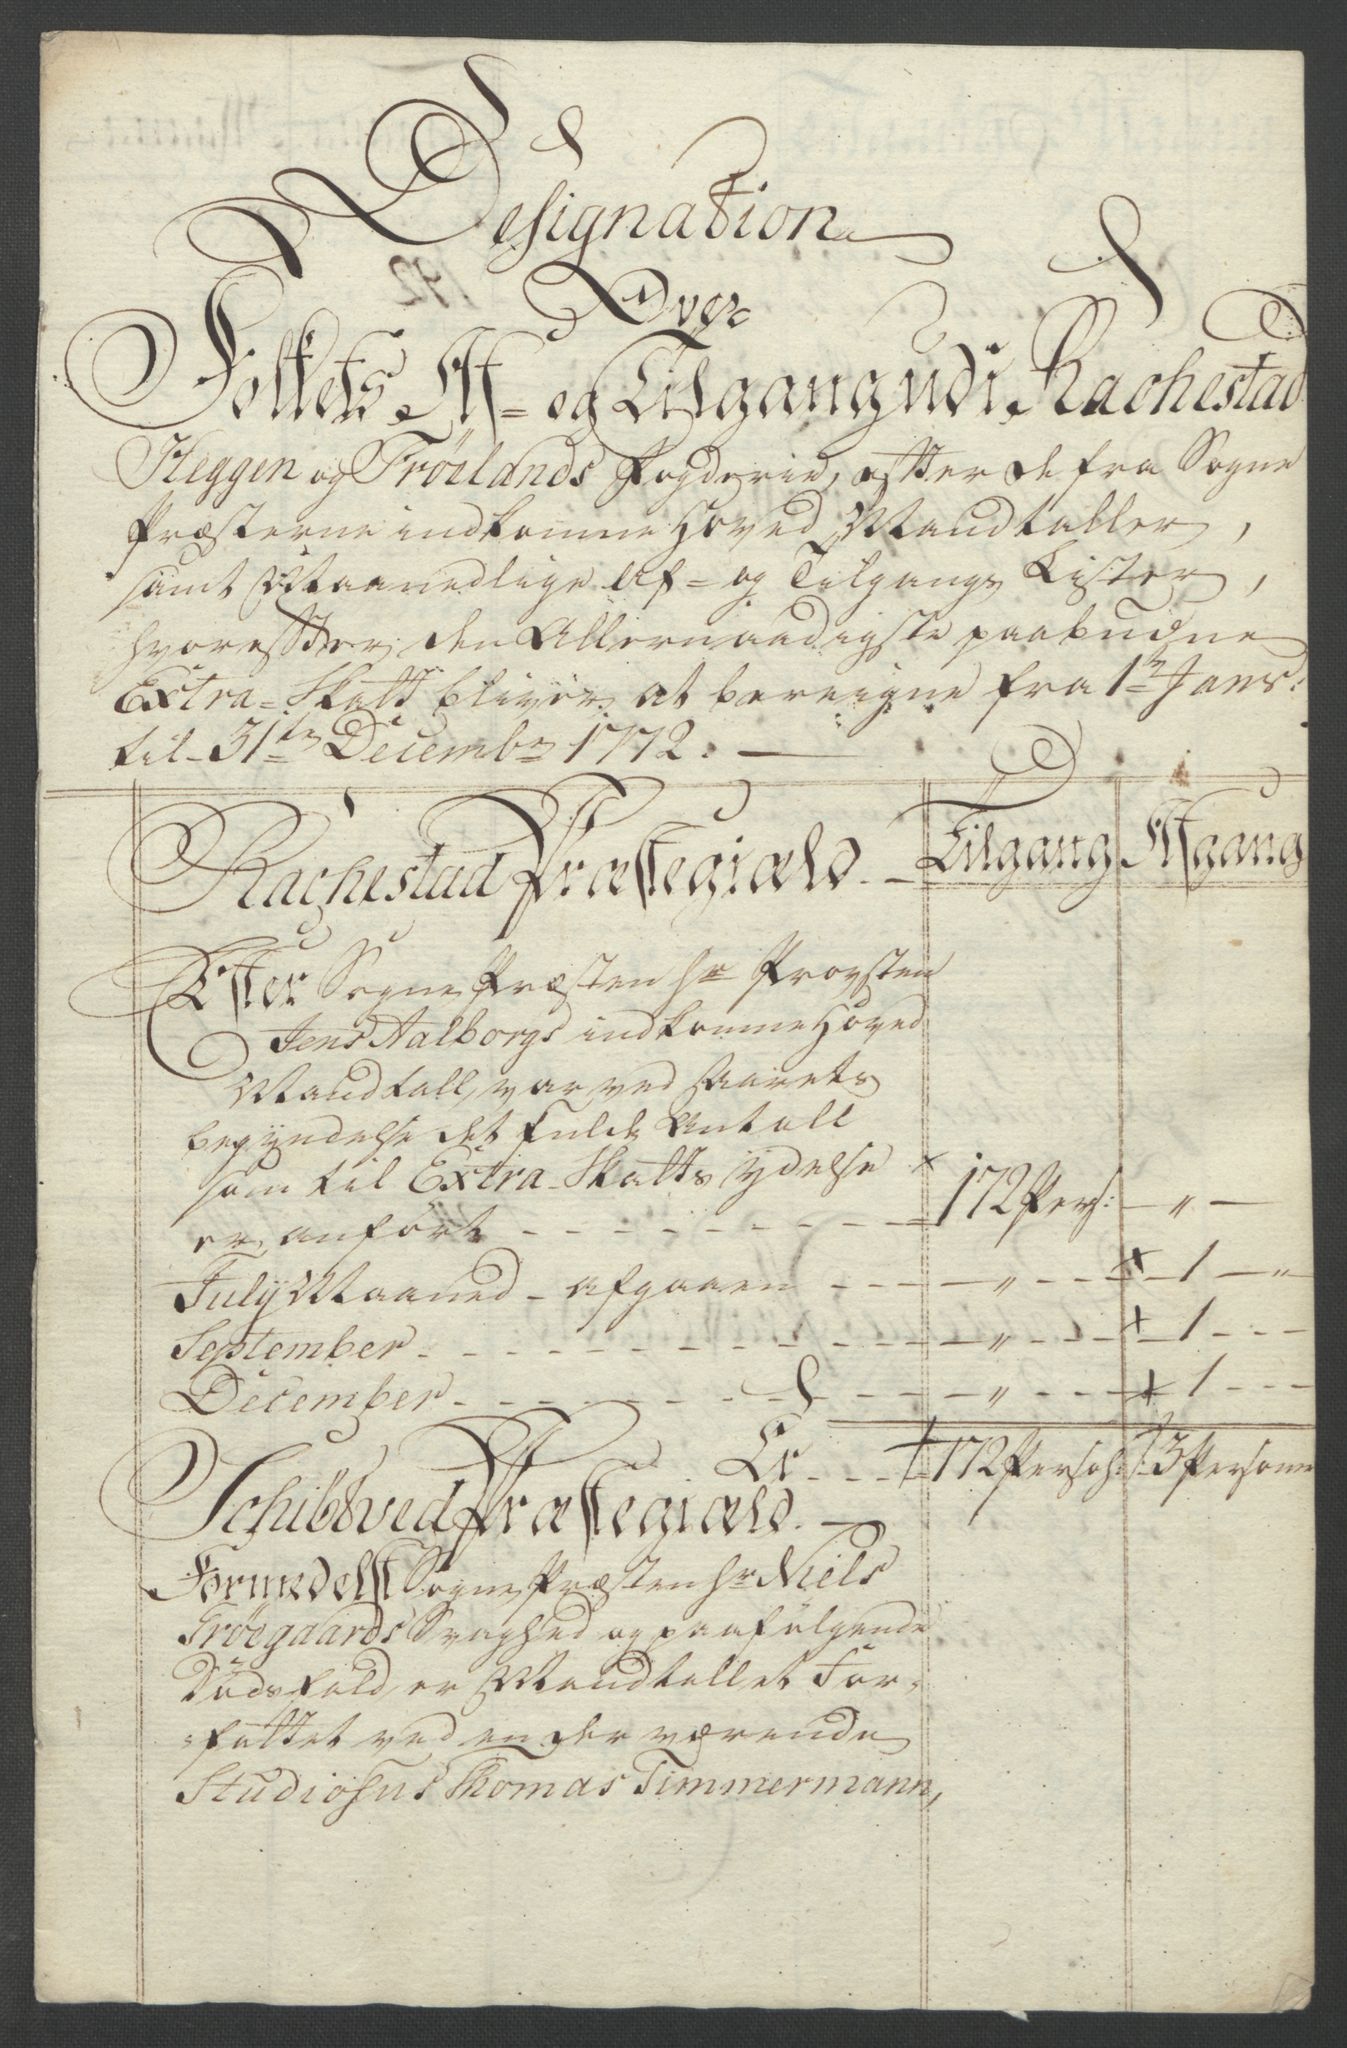 Designation
Over
Folkets Af- og Tilgang udi Rachestad
Heggen og Fröelands Fogderie, efter de fra Sogne
Præsterne indkomne Hoved Mandtaller,
samt Maanedlige Af- og Tilgangs Lister,
hvorefter den Allernaadigste paabudne
Extra-Skatt bliver at bereigne fra 1te Janr:
til 31te Decembr 1772.
Rachestad Præstegiæld. Tilgang Afgang
Efter Sogne Præsten Hr Provsten
Jens Aalborgs indkomne Hoved
Mandtall, var ved Aarets
begÿndelse det fulde Antall
som til Extra-Skatts ÿdelse
er anfört - - - 172 Pers: — „ —
Julÿ Maaned - afgaaen - - - „ - - - 1 — „
September - - - „ - - - 1 - - -
December - - - „ - - - 1 - - -
Er - - - 172 Persoh: 3 Persone
Schibtved Præstegiæld.
Formedelst Sogne Præsten Hr Niels
Fröegaards Svaghed og paafölgende
Dödsfald, er Mandtallet For-
fattet ved en der værende
Studiosus Thomas Timmermann,